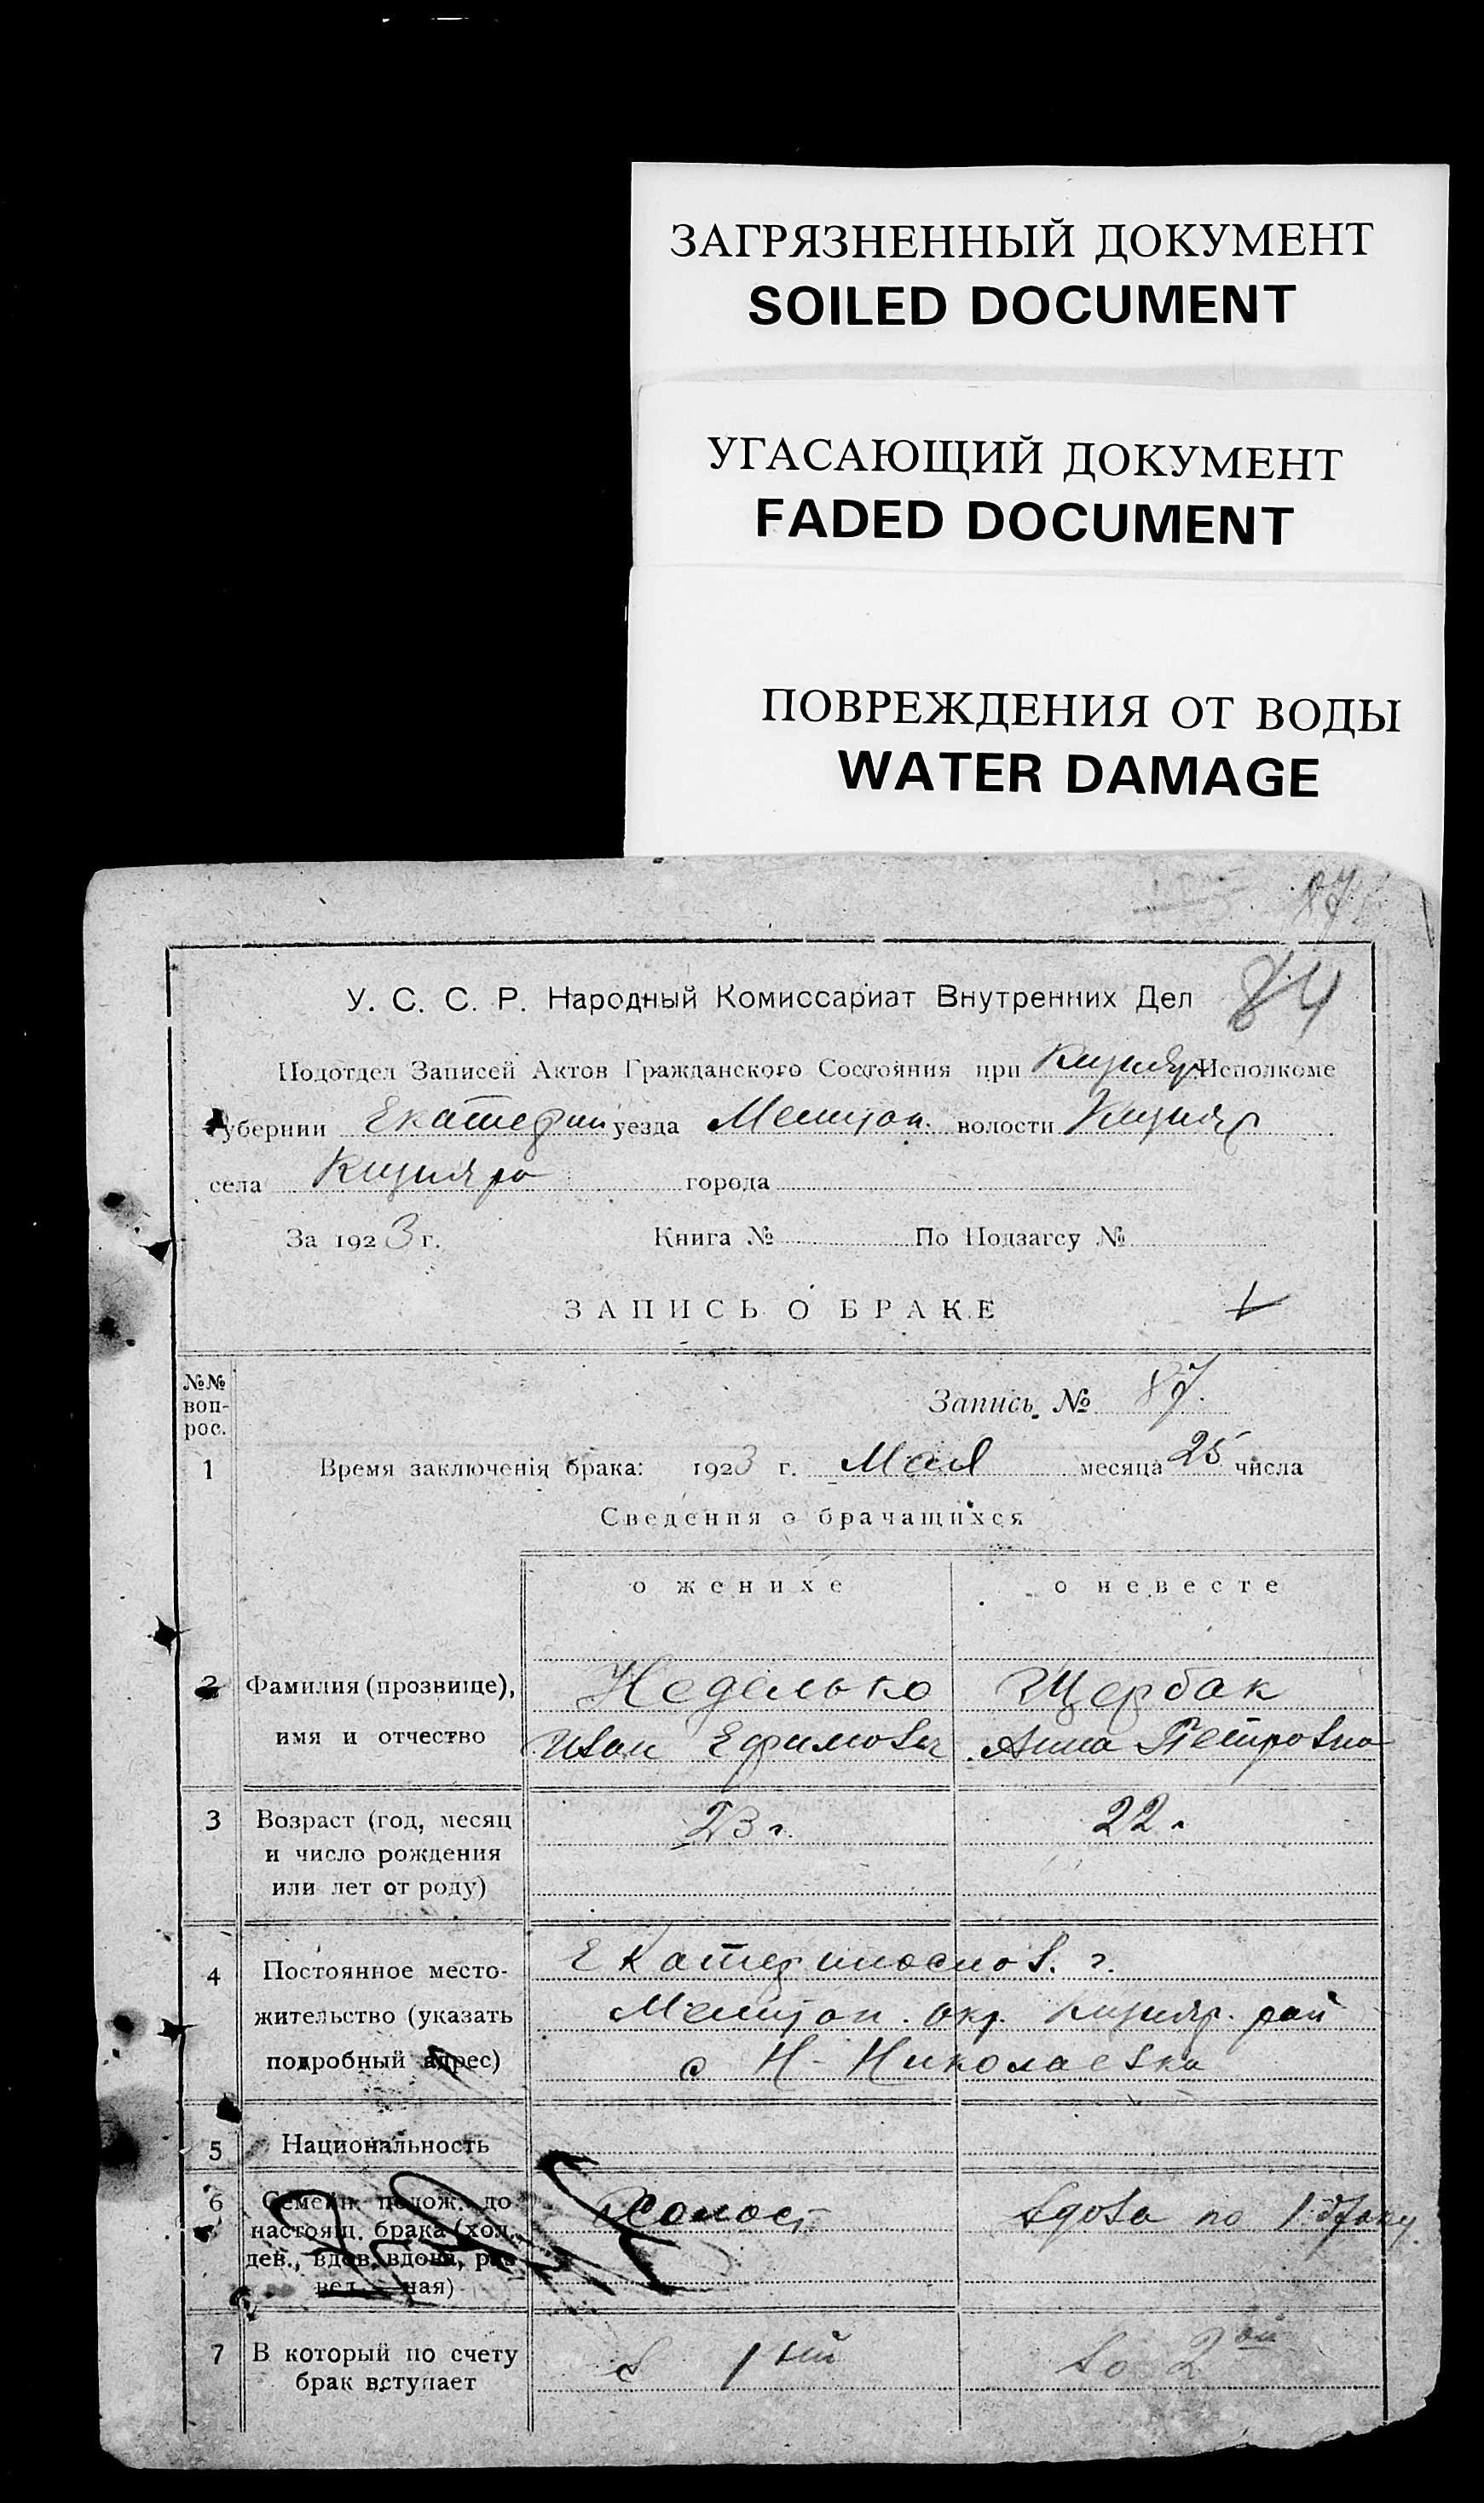 ЗАГРЯЗНЕННЫЙ ДОКУМЕНТ
SOILED DOCUMENT
УГАСАЮЩИЙ ДОКУМЕНТ
FADED DOCUMENT
ПОВРЕЖДЕНИЯ ОТ ВОДЫ
WATER DAMAGE
87
84
У. С. С. Р. Народный Комиссариат Внутренних Дел
Подотдел Записей Актов Гражданского Состояния при Кизияр Исполкоме
Губернии Екатерин уезда Мелитоп. волости Кизияр
села Кизияро города
За 1923 г. Книга № По Подзагсу №
ЗАПИСЬ О БРАКЕ
№№ воп-рос.
Запись № 87.
1 Время заключенія брака: 1923 г. Мая месяца 25 числа
Сведения о брачащихся
о женихе о невесте
2 Фамилия (прозвище), Неделько Щербак
имя и отчество Иван Ефимович Анна Петровна
3 Возраст (год, месяц 23 г. 22 г.
и число рождения
или лет от роду)
4 Постоянное место- Екатеринослов. г.
жительство (указать Мелитоп. окр. Кизияр. рай
подробный адрес) с Н-Николаевка
5 Национальность
6 Семейн. полож. до Холост вдова по 1 браку
настоящ. брака (хол.,
дев., вдов. вдова, раз
вед. — ная)
7 В который по счету в 1ый во 2ой
брак вступает